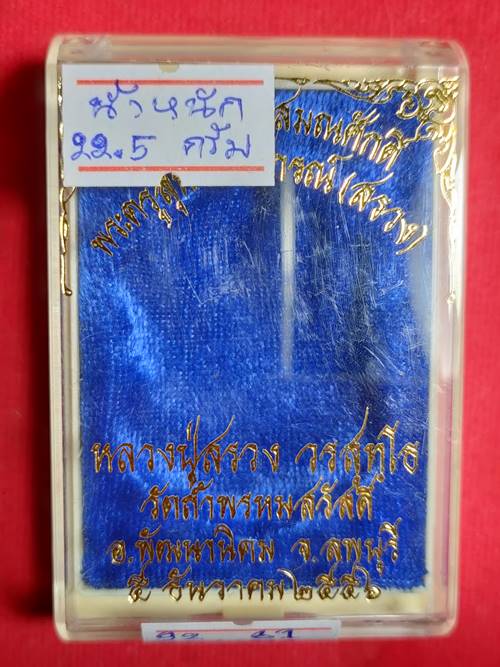 น้ำหนัก
22.5 กรัม
สมณศักดิ์
พระครู ารณ์ (สรวง)
หลวงปู่สรวง วรสุทฺโธ
วัดถ้ำพรหมสวัสดิ์
อ.พัฒนานิคม จ.ลพบุรี
๕ ธันวาคม ๒๕๕๖